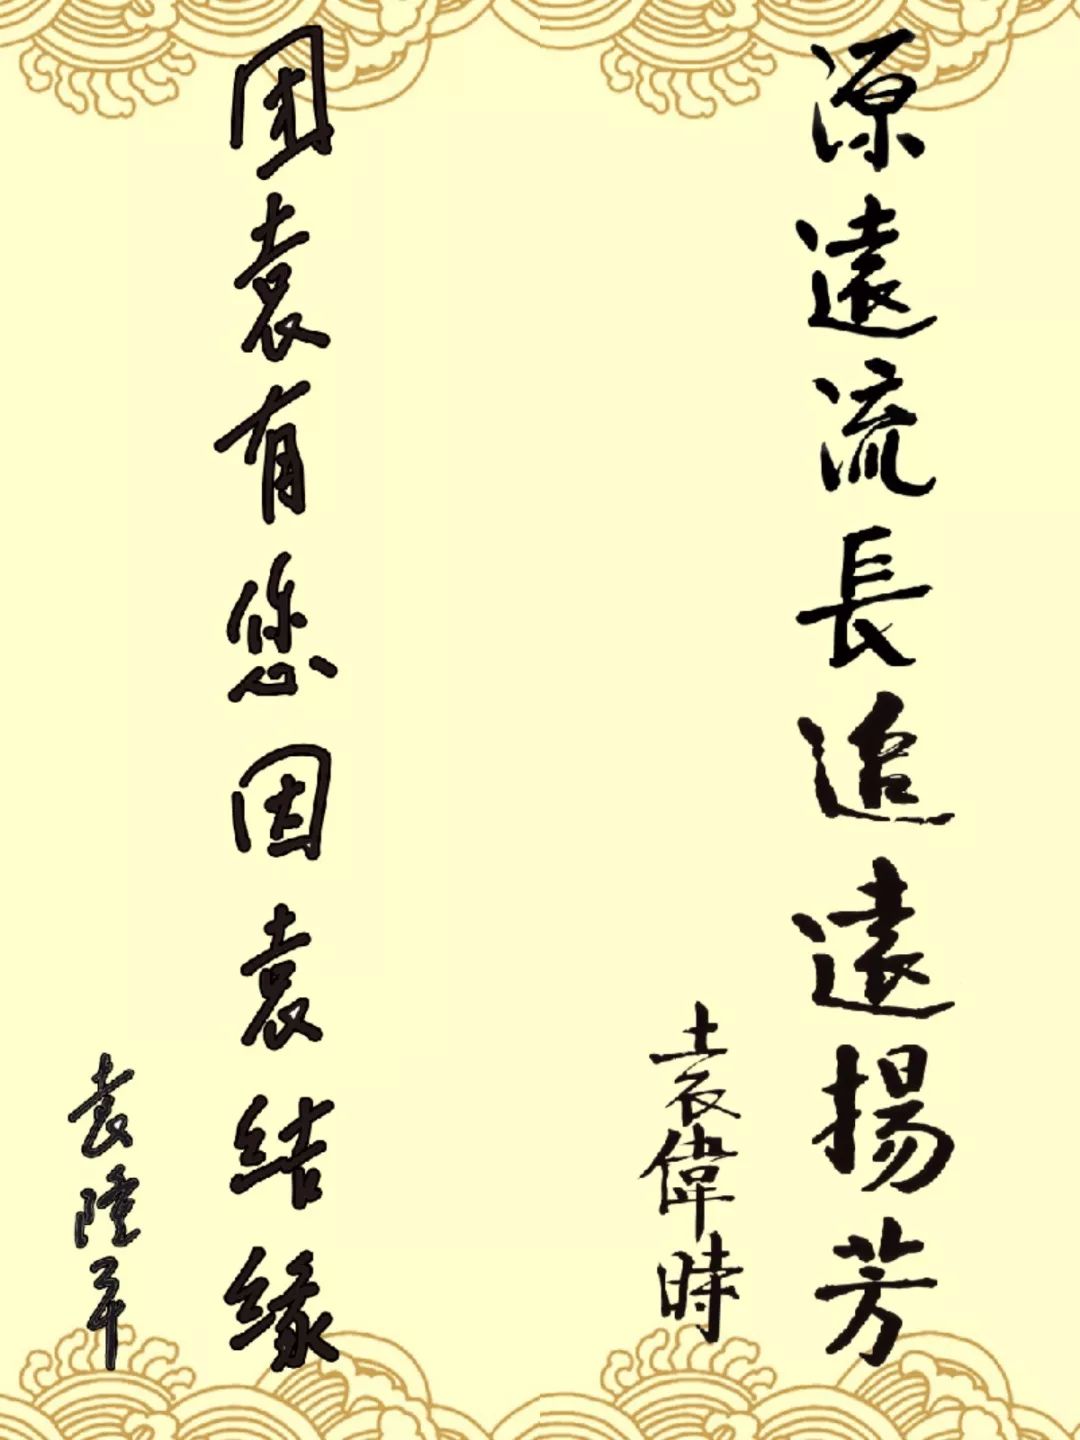 源遠流長追遠揚芳
袁偉時
团袁有您因袁结缘
袁隆平